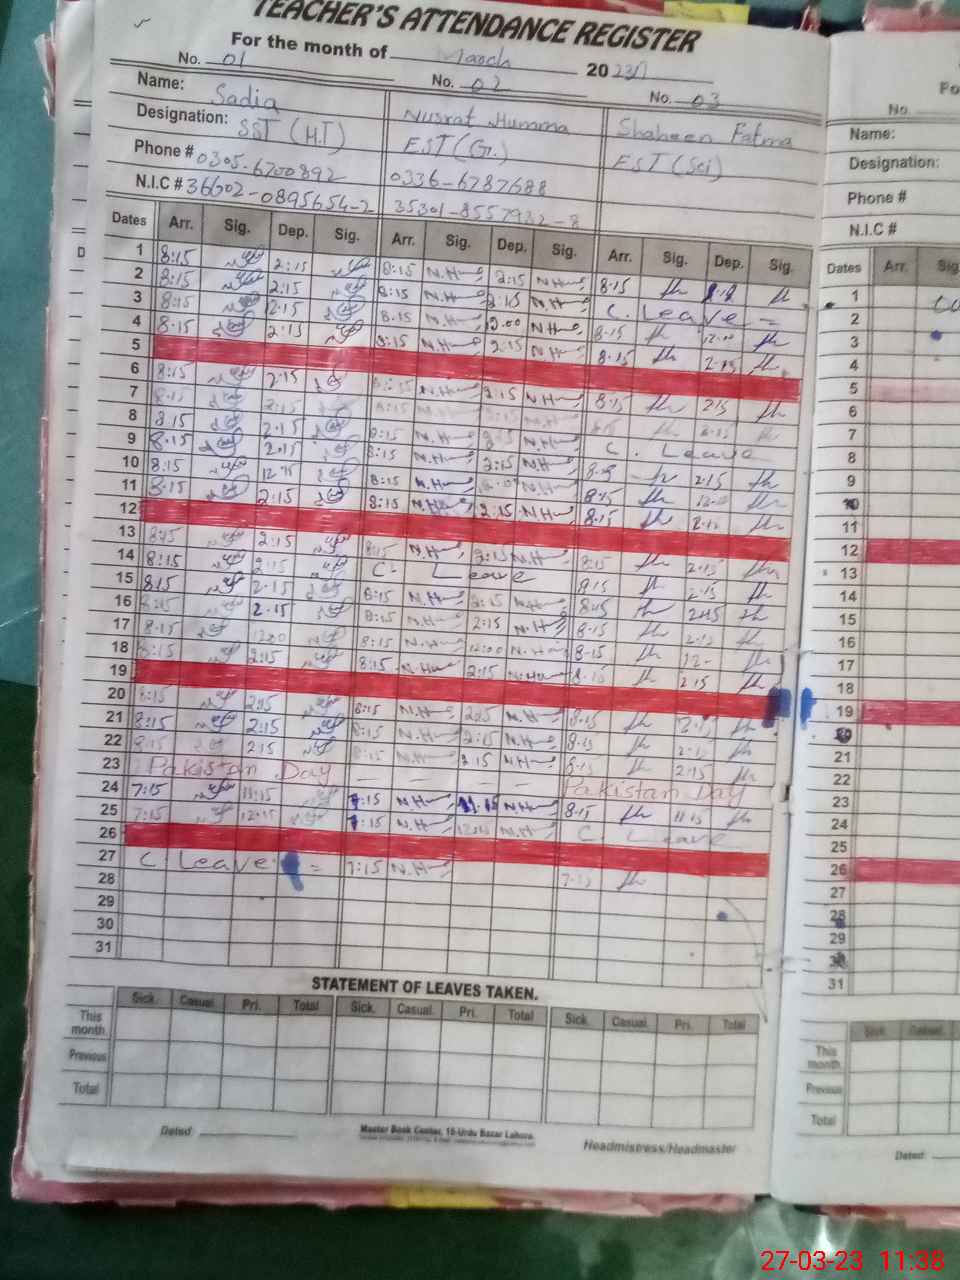 TEACHER'S ATTENDANCE REGISTER
For the month of March 2023
No. 01 No. 02 No. 03
Name: Sadia Nusrat Humma Shaheen Fatma
Designation: SST (H.T) EST (G.) EST (Sci)
Phone # 0305-6700892 0336-6787688
N.I.C # 36602-0895654-2 35301-8557932-8
Dates Arr. Sig. Dep. Sig. Arr. Sig. Dep. Sig. Arr. Sig. Dep. Sig.
1 8:15 2:15 8:15 N.H 2:15 N.H 8.15
2 8:15 2:15 8:15 N.H 2:15 N.H C. Leave
3 8:15 2:15 8.15 N.H 12.00 N.H 8.15 12.00
4 8.15 2:15 8:15 N.H 2:15 N.H 8.15 2.15
5
6 8:15 2:15 N.H 2:15 N.H 8.15 2.15
7 8.15 2:15 8:15 N.H 2:15 N.H 8.15 2.15
8 8.15 2.15 8:15 N.H N.H C. Leave
9 8.15 2.15 8:15 N.H 2:15 N.H 2.15
10 8:15 8:15 N.H N.H 8.15 12.00
11 8:15 2:15 8:15 N.H 2:15 N.H 8.15
12
13 8:15 2:15 8:15 N.H 2:15 N.H 8:15 2.15
14 8:15 2:15 C. Leave 8.15 2.15
15 8:15 2.15 8:15 N.H 2:15 N.H 2.15
16 8:15 2.15 8:15 N.H 2:15 N.H 8.15
17 8.15 12:00 8:15 N.H 12:00 N.H 8.15
18 8:15 2:15 8:15 N.H 2:15 N.H 2.15
19
20 8:15 2:15 8:15 N.H 2:15 N.H 8.15 2.15
21 8:15 2:15 8:15 N.H 2:15 N.H 8.15
22 8:15 2:15 8:15 N.H 2:15 N.H 8.15 2.15
23 Pakistan Day — — — — Pakistan Day
24 7:15 11:15 7:15 N.H 11.15 N.H 8.15 11.15
25 7:15 7:15 N.H N.H C. Leave
26
27 C Leave = 7:15 N.H 7.15
28
29
30
31
STATEMENT OF LEAVES TAKEN.
Sick. Casual. Pri. Total Sick. Casual. Pri. Total Sick. Casual. Pri. Total
This month
Previous
Total
Dated
Master Book Center, 15-Urdu Bazar Lahore.
Headmistress/Headmaster
Fo
No.
Name:
Designation:
Phone #
N.I.C #
Dates Arr. Sig
1
2
3
4
5
6
7
8
9
10
11
12
13
14
15
16
17
18
19
20
21
22
23
24
25
26
27
28
29
30
31
Sick Casual.
This month
Previous
Total
Dated
27-03-23 11:38